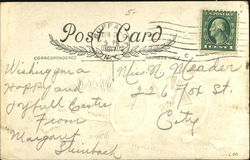 5-
Post Card
CORRESPONDENCE
Wishing you a
Happy and
Joyfull Easter
From
Margaret
Steinback
Miss N. Meader
226 Fox St.
City